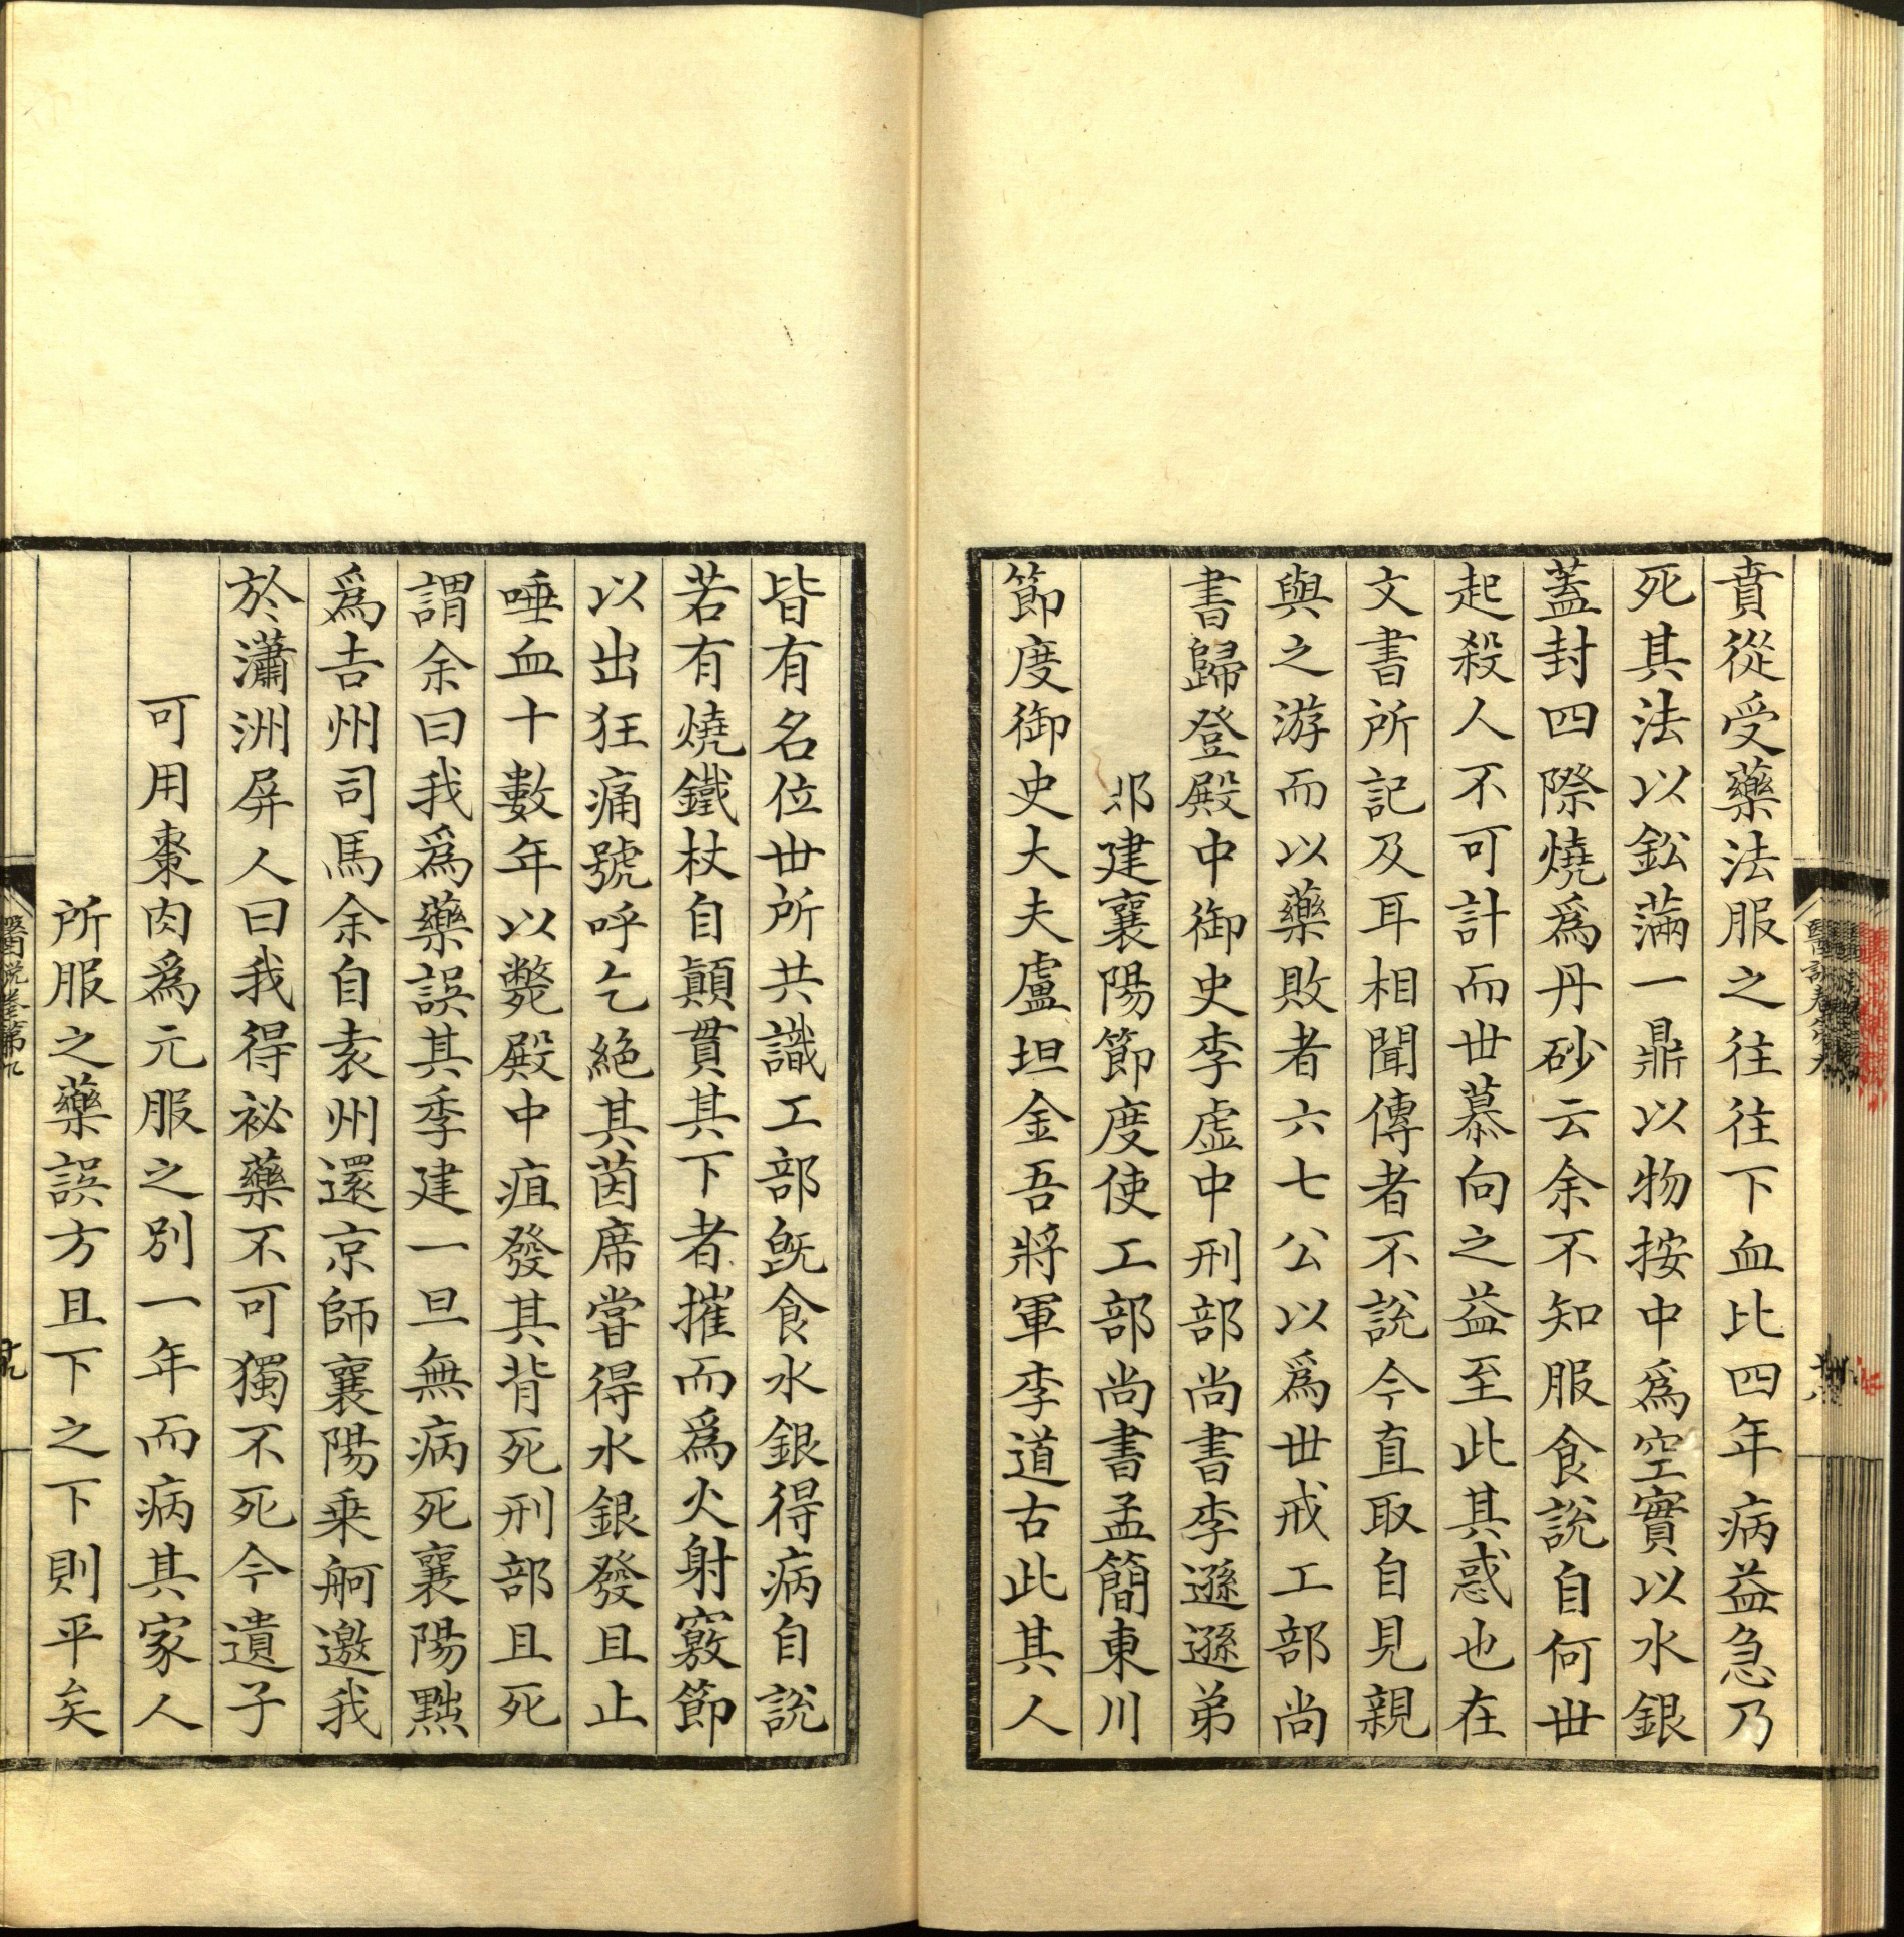 賁從受藥法服之往往下血比四年病益急乃
死其法以鈆滿一鼎以物按中爲空實以水銀
蓋封四際燒爲丹砂云余不知服食說自何世
起殺人不可計而世慕向之益至此其惑也在
文書所記及耳相聞傳者不說今直取自見親
與之游而以藥敗者六七公以爲世戒工部尚
書歸登殿中御史李虛中刑部尚書李遜遜弟
建襄陽節度使工部尚書孟簡東川
節度御史大夫盧坦金吾將軍李道古此其人
皆有名位世所共識工部旣食水銀得病自說
若有燒鐵杖自顛貫其下者摧而爲火射竅節
以出狂痛號呼乞絕其茵席嘗得水銀發且止
唾血十數年以斃殿中疽發其背死刑部且死
謂余曰我爲藥誤其季建一旦無病死襄陽黜
爲吉州司馬余自袁州還京師襄陽乘舸邀我
於瀟洲屏人曰我得祕藥不可獨不死今遺子
可用棗肉爲元服之別一年而病其家人
所服之藥誤方且下之下則平矣
醫說卷第九